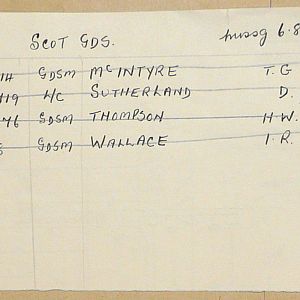 SCOT GDS.
14 GDSM McINTYRE T. G
119 L/C SUTHERLAND D.
76 GDSM THOMPSON H.W.
GDSM WALLACE I. R.